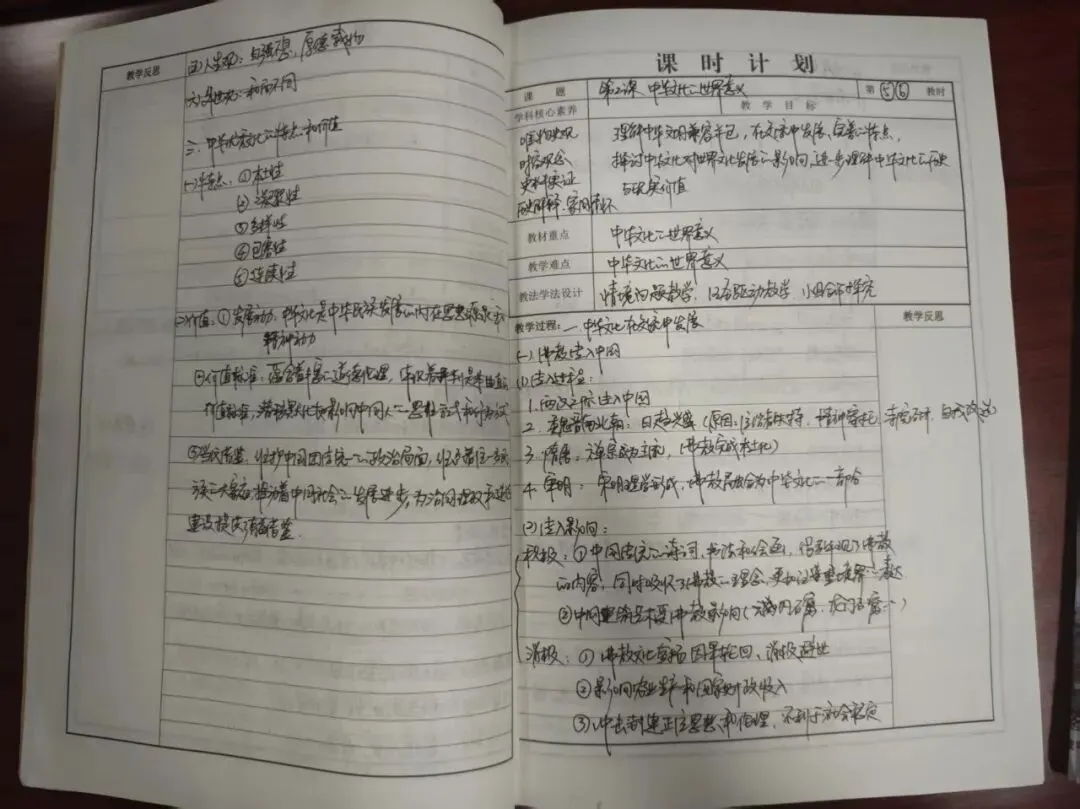 教学反思
五)人生观：自强不息、厚德载物
六) 和而不同
二、中华优秀文化の特点和价值
(一)特点：①本土性
②凝聚性
③多样性
④包容性
⑤连续性
(二)价值：①发展动力：中华文化是中华民族发展の内在思想源泉和
精神动力
②价值标准：蕴含着丰富の道德伦理，体现着评判是非曲直の
价值标准，潜移默化地影响中国人の思维方式和行为方式
③当代借鉴：维护中国团结统一の政治局面，
推动着中国社会の发展进步，为治国理政和道德
建设提供有益借鉴.
课时计划
课题
第2课 中华文化の世界意义
第⑤⑥教时
学科核心素养
教学目标
唯物史观
时空观念
史料实证
历史解释、家国情怀
理解中华文明兼容并包，在交流中发展、完善の特点，
探讨中华文化对世界文化发展の影响，进一步理解中华文化の历史
与现实价值
教材重点
中华文化の世界意义
教学难点
中华文化の世界意义
教法学法设计
情境问题教学、任务驱动教学、小组合作探究
教学过程：一、中华文化在交流中发展
教学反思
(一)佛教传入中国
(1)传入过程：
1. 两汉之际传入中国
2. 魏晋南北朝：日趋兴盛(原因：统治者扶持、精神寄托、自我改造
3. 隋唐：禅宗成为主流，(佛教完成本土化)
4. 宋明：宋明理学形成，佛教融合为中华文化の一部分
(2)传入影响：
积极：①中国传统の诗词、书法和绘画，佛教
の内容，同时吸收了佛教の理念，更加注重境界の表达
②中国建筑艺术受佛教影响(云冈石窟、龙门石窟)
消极：①佛教文化宣扬因果轮回、消极避世
②影响农业生产和国家财政收入
③冲击封建正统思想和伦理，不利于社会稳定